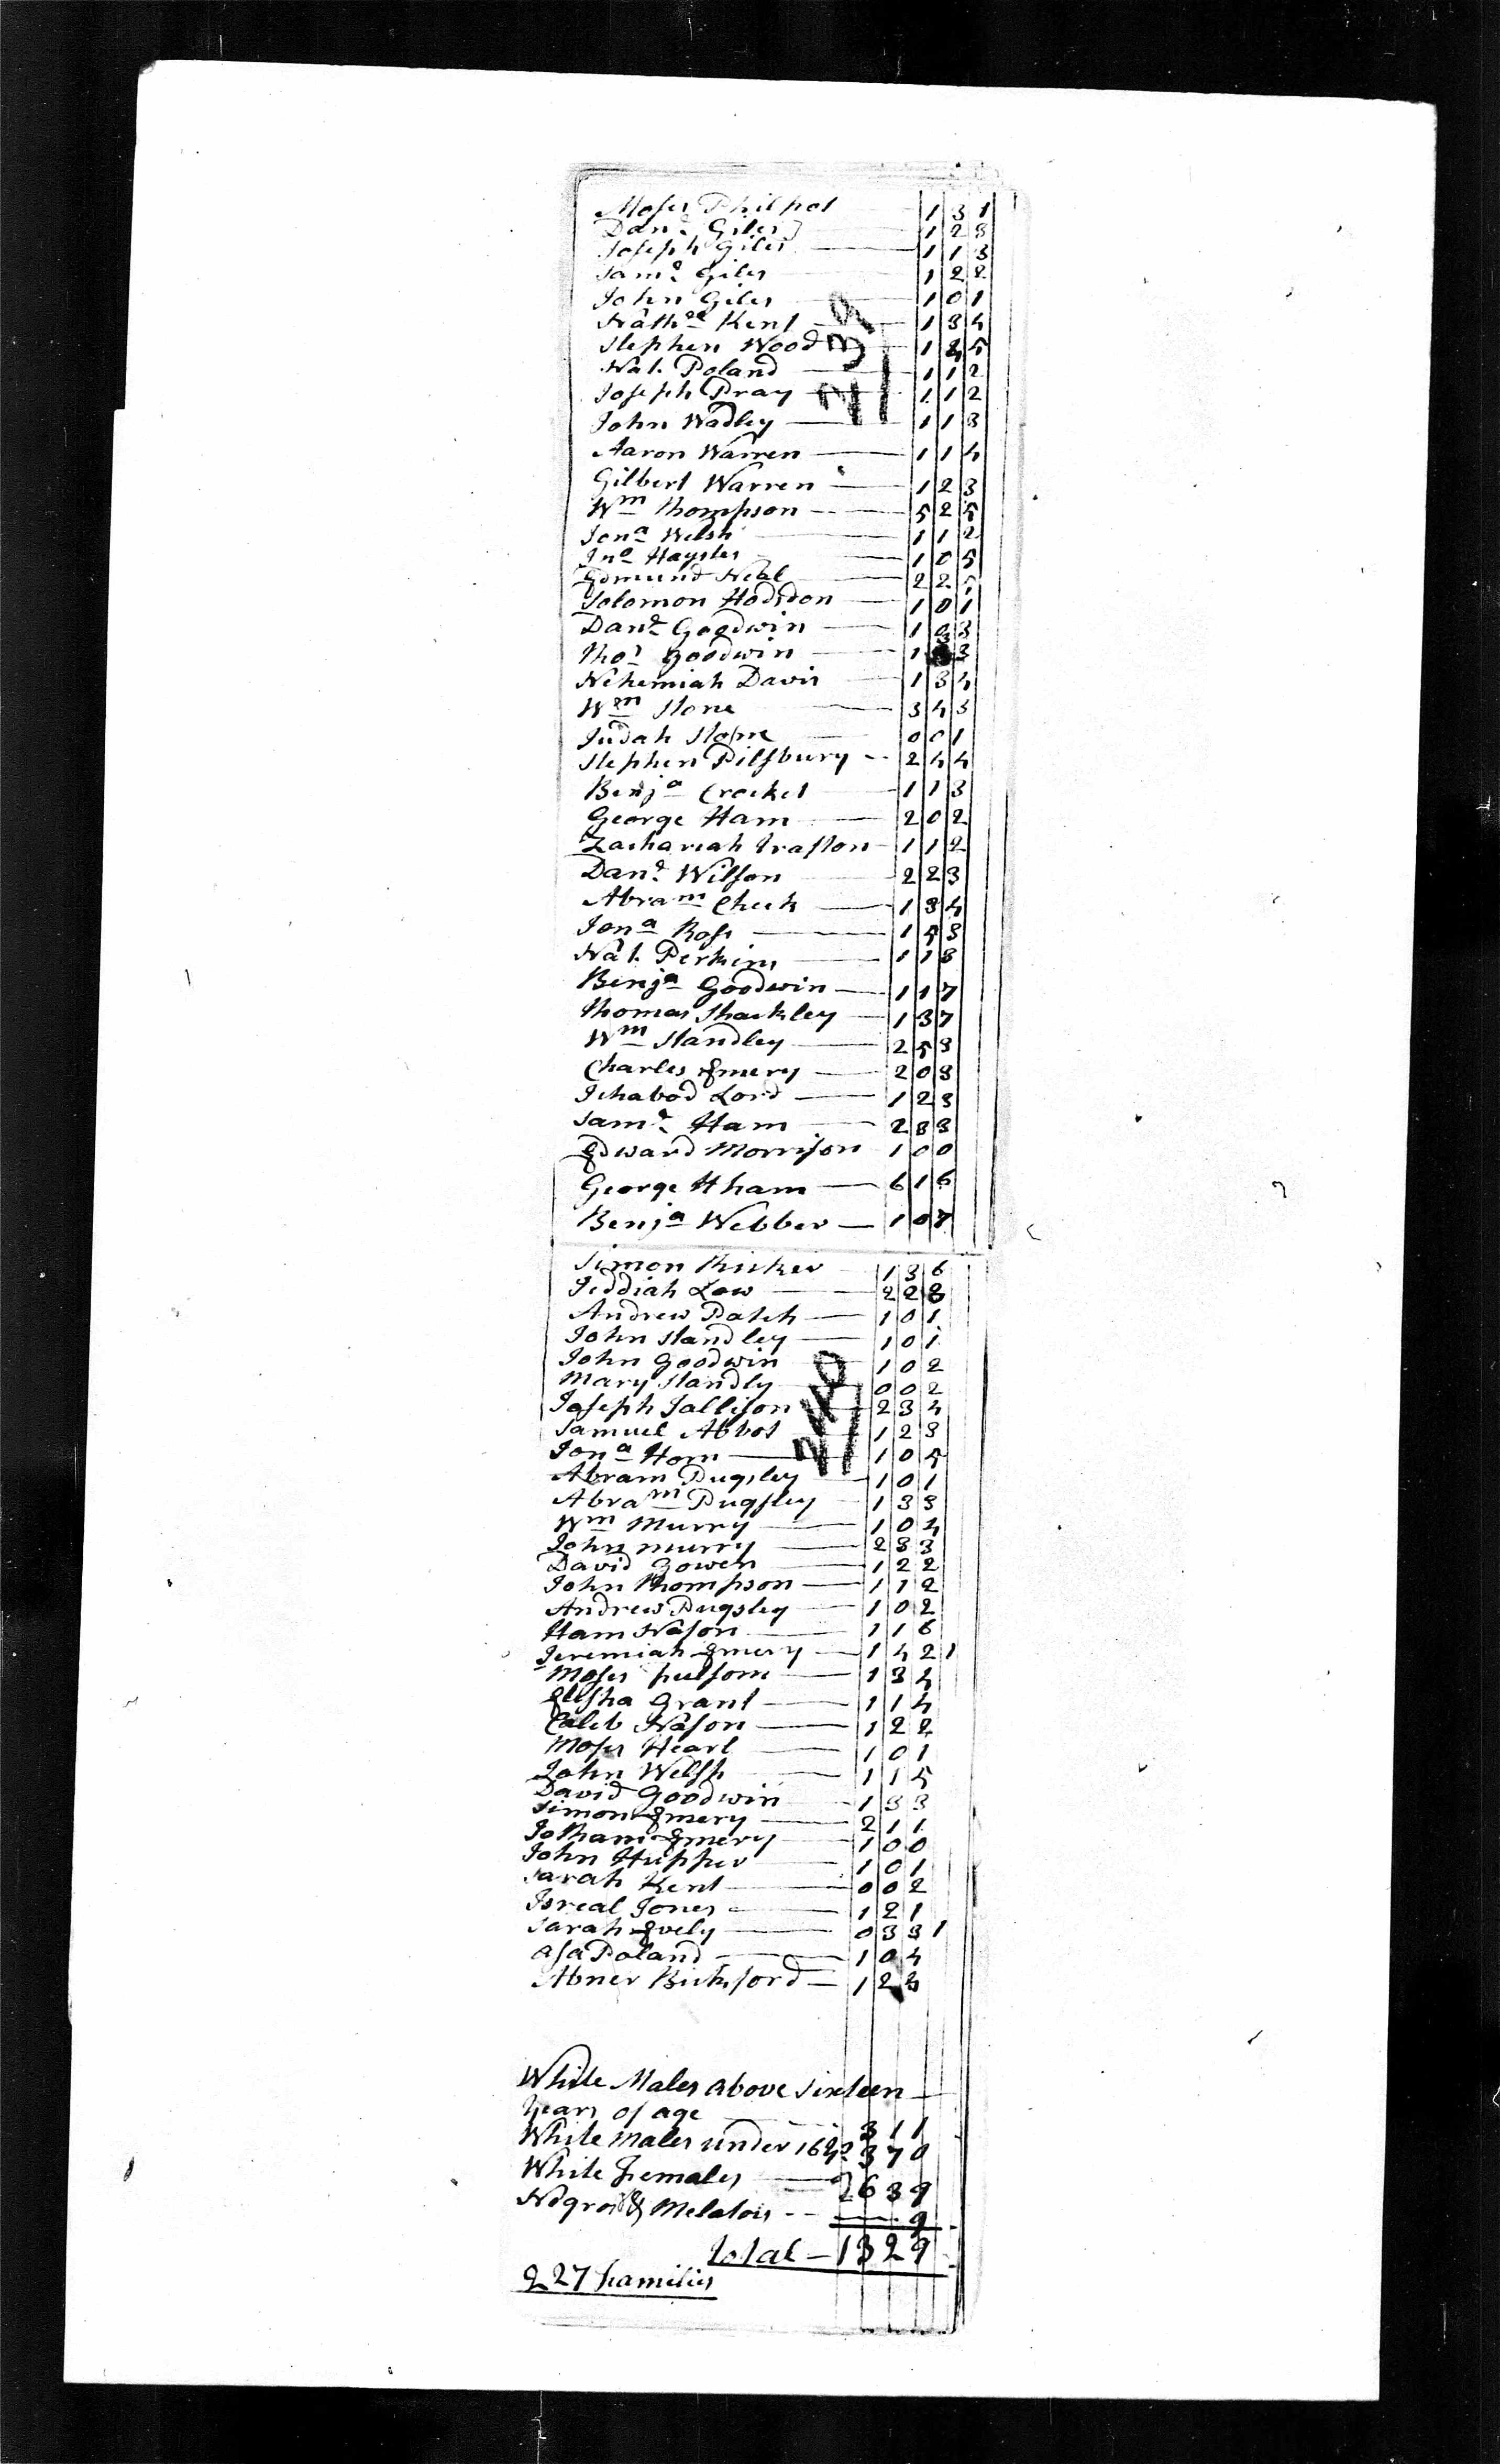 Moses Philpot 1 3 1
Danl Giles 1 2 3
Joseph Giles 1 1 3
Saml Giles 1 2 2
John Giles 1 0 1
Nathll Kent 1 3 4
Stephen Wood 1 4 5
Nat. Poland 1 1 2
Joseph Pray 1 1 2
John Wadley 1 1 3
239
Aaron Warren 1 1 4
Gilbert Warren 1 2 3
Wm Thompson 5 2 5
Jona Welsh 1 1 2
Jno Haysles 1 0 5
Edmund Neal 2 2 5
Solomon Hodsdon 1 0 1
Danl Goodwin 1 3 3
Thos Goodwin 1 3
Nehemiah Davis 1 3 4
Wm Stone 3 4 3
Judah Stone 0 0 1
Stephen Pilsbury 2 4 4
Benja Crocket 1 1 3
George Ham 2 0 2
Zachariah Trafton 1 1 2
Danl Wilson 2 2 3
Abram Cheek 1 3 4
Jona Ross 1 5 3
Nat. Perkins 1 1 3
Benja Goodwin 1 1 7
Thomas Shackley 1 3 7
Wm Standley 2 5 3
Charles Emery 2 0 3
Ichabod Lord 1 2 3
Saml Ham 2 3 3
Edward Morrison 1 0 0
George Hham 6 1 6
Benja Webber 1 0 7
Simon Ricker 1 3 6
Jeddiah Low 2 2 3
Andrew Patch 1 0 1
John Standley 1 0 1
John Goodwin 1 0 2
Mary Standly 0 0 2
Joseph Jallison 2 3 4
Samuel Abbot 1 2 3
Jona Horn 1 0 5
240
Abram Pugsley 1 0 1
Abram Pugsley 1 3 3
Wm Murry 1 0 4
John Murry 2 3 3
David Bowen 1 2 2
John Thompson 1 1 2
Andrew Pugsley 1 0 2
Ham Nason 1 1 6
Jeremiah Emery 1 4 2 1
Moses fulsom 1 3 4
Elisha Grant 1 1 4
Caleb Nason 1 2 2
Moses Hearl 1 0 1
John Welsh 1 1 5
David Goodwin 1 3 3
Simon Emery 2 1 1
Jotham Emery 1 0 0
John Hupper 1 0 1
Sarah Kent 0 0 2
Isreal Jones 1 2 1
Sarah Evely 0 3 3 1
Asa Poland 1 0 4
Abner Bickford 1 2 3
White Males above sixteen
Years of age 311
White Males under 16 370
White Females 639
Negroes & Melatois 9
Total 1329
227 families